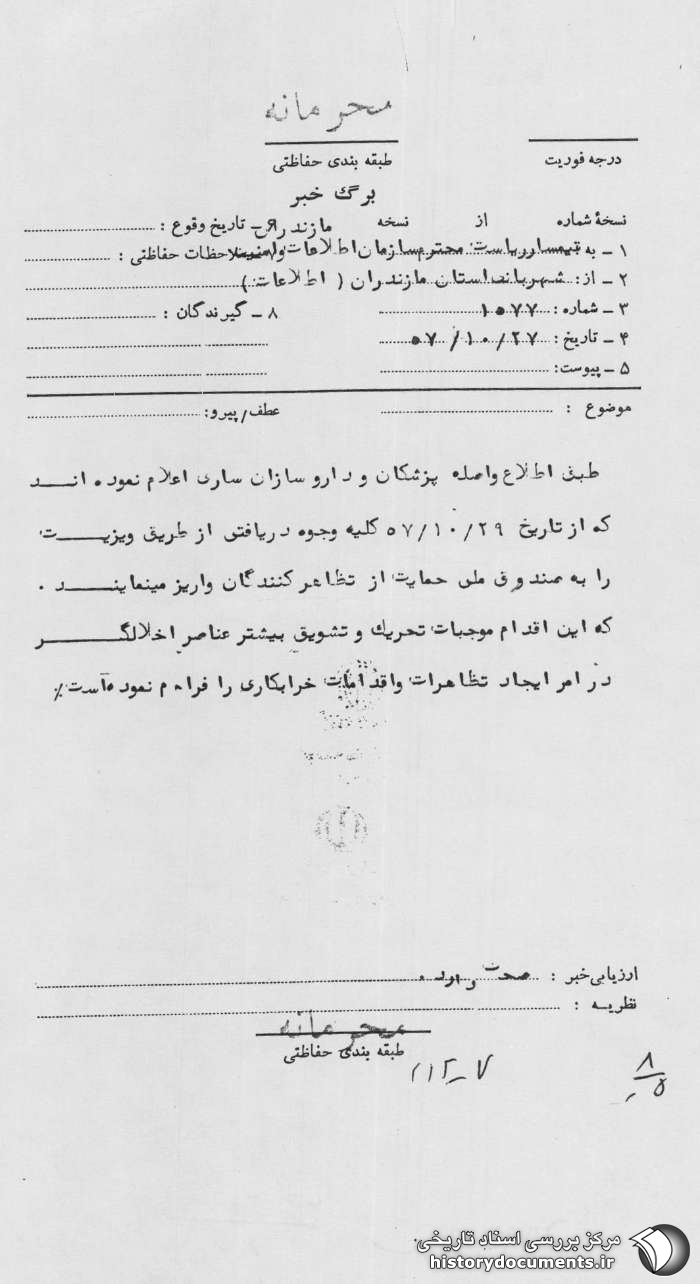 محرمانه
درجه فوریت
طبقه بندی حفاظتی
برگ خبر
نسخهٔ شماره از نسخه
مازندران
تاریخ وقوع :
۱ ـ به تیمسار ریاست محترم سازمان اطلاعات و امنیت
ملاحظات حفاظتی :
۲ ـ از: شهربانی استان مازندران ( اطلاعات )
۳ ـ شماره : ۱۰۵۷۷
۸ ـ گیرندگان :
۴ ـ تاریخ : ۵۷/۱۰/۲۷
۵ ـ پیوست:
موضوع :
عطف/پیرو:
طبق اطلاع واصله پزشکان و داروسازان ساری اعلام نموده اند
که از تاریخ ۵۷/۱۰/۲۹ کلیه وجوه دریافتی از طریق ویزیت
را به صندوق ملی حمایت از تظاهرکنندگان واریز مینمایند .
که این اقدام موجبات تحریک و تشویق بیشتر عناصر اخلالگر
در امر ایجاد تظاهرات و اقدامات خرابکاری را فراهم نموده است٪
ارزیابی خبر : صحت دارد .
نظریه :
محرمانه
طبقه بندی حفاظتی
مرکز بررسی اسناد تاریخی
historydocuments.ir